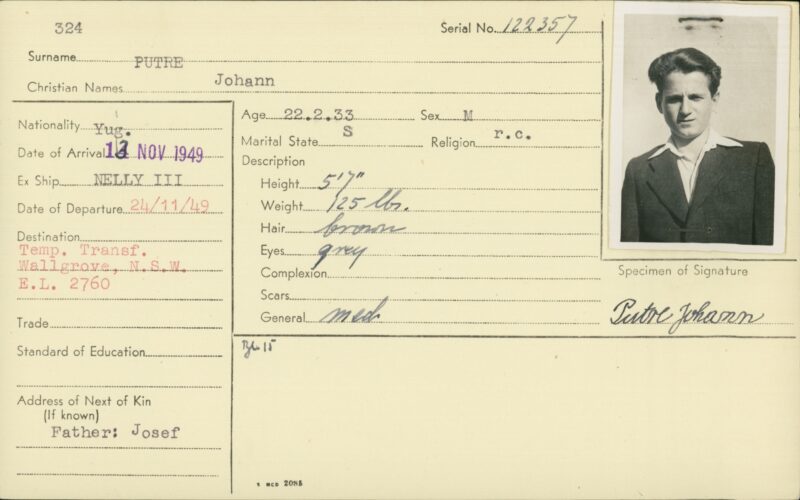 324
Serial No. 122357
Surname PUTRE
Christian Names Johann
Nationality Yug.
Date of Arrival NOV 1949
Ex Ship NELLY III
Date of Departure 24/11/49
Destination
Temp. Transf.
Wallgrove, N.S.W.
E.L. 2760
Trade
Standard of Education
Address of Next of Kin
(If known)
Father: Josef
Age 22.2.33 Sex M
Marital State S Religion r.c.
Description
Height 5'7"
Weight 125 lbs.
Hair brown
Eyes grey
Complexion
Scars
General med
Specimen of Signature
Putre Johann
15